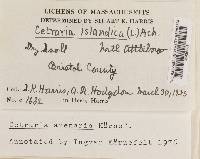 LICHENS OF MASSACHUSETTS
DETERMINED BY STUART K. HARRIS
Cetraria islandica (L.) Ach.
Dry Soil North Attleboro
Bristol County
Col. S.K. Harris, A.R. Hodgdon March 30, 1935
No. 1632 in Herb. Harris
Cetraria arenaria Kärnef.
Annotated by Ingvar Kärnefelt 1976